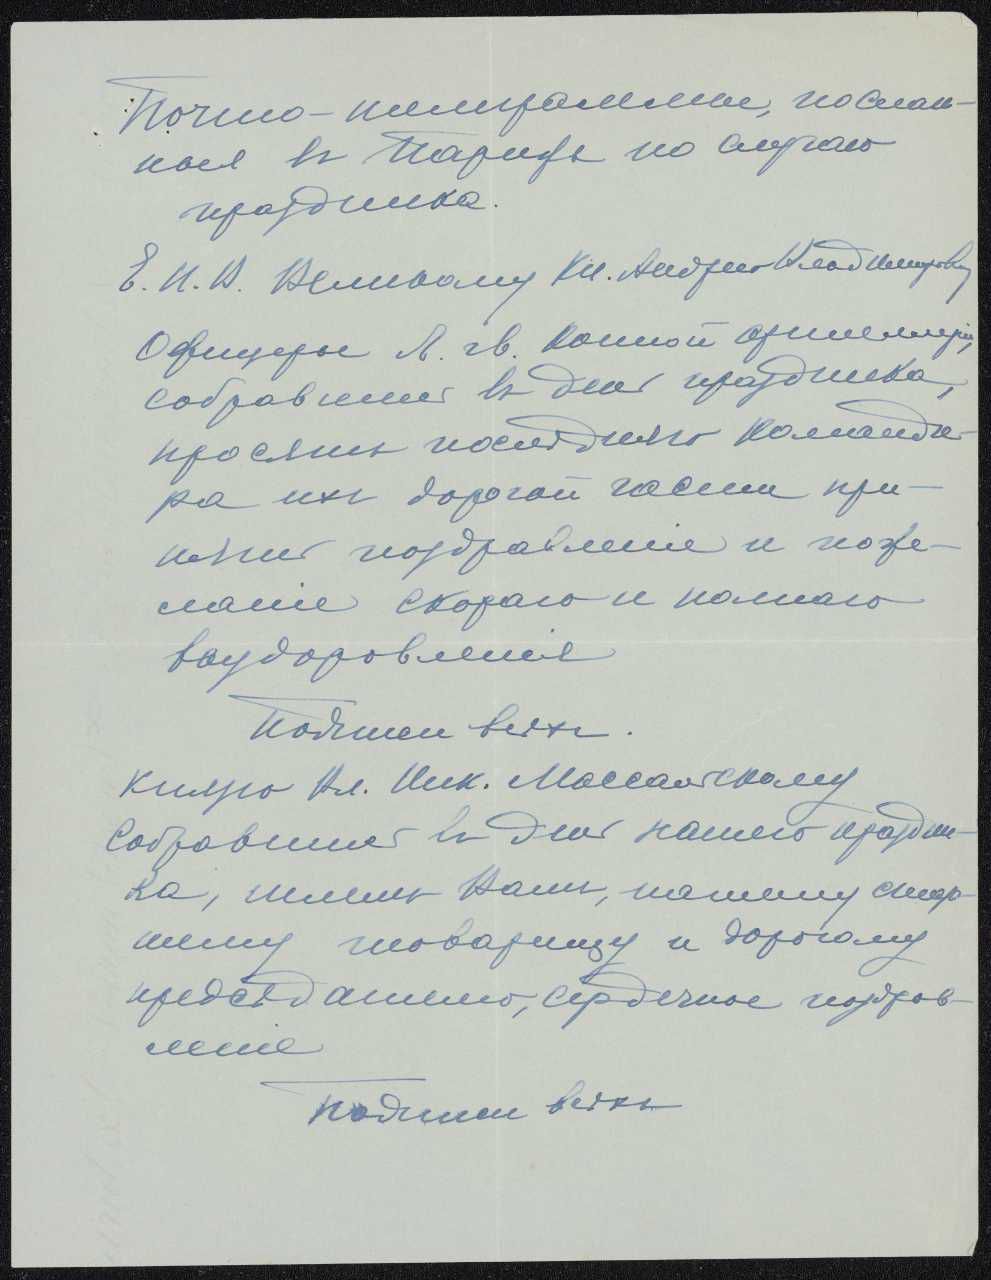 Почто-телеграммы, послан-
ныя въ Парижъ по случаю
праздника.
Е. И. В. Великому Кн. Андрею Владимировичу
Офицеры Л. гв. Конной артиллеріи,
собравшись въ день праздника,
просятъ последняго Команди-
ра ихъ дорогой части при-
нять поздравленіе и поже-
ланіе скораго и полнаго
выздоровленія
Подписи всѣхъ.
Князю Вл. Ник. Массальскому
Собравшись въ день нашего праздни-
ка, шлемъ Вамъ, нашему стар-
шему товарищу и дорогому
предсѣдателю, сердечное поздрав-
леніе
Подписи всѣхъ